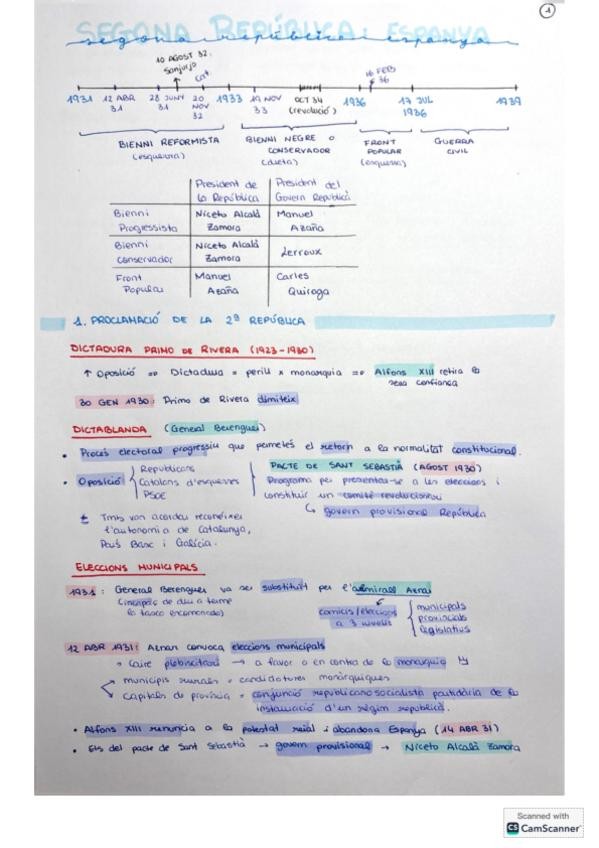 1
SEGONA REPÚBLICA: ESPANYA
segona república: espanya
10 AGOST 32.
Sanjurjo
cat.
16 FEB
36
1931 12 ABR 28 JUNY 20 1933 19 NOV OCT 34 1936 17 JUL 1939
31 31 NOV 33 (revolució) 1936
32
BIENNI REFORMISTA
(esquerra)
BIENNI NEGRE O
CONSERVADOR
(dreta)
FRONT
POPULAR
(esquerra)
GUERRA
CIVIL
President de President del
la República Govern República
Bienni Niceto Alcalá Manuel
Progressista Zamora Azaña
Bienni Niceto Alcalà Lerroux
Conservador Zamora
Front Manuel Carles
Popular Azaña Quiroga
1. PROCLAMACIÓ DE LA 2ª REPÚBLICA
DICTADURA PRIMO DE RIVERA (1923-1930)
↑ Oposició => Dictadura = perill x monarquia => Alfons XIII retira la
seva confiança
30 GEN 1930: Primo de Rivera dimiteix
DICTABLANDA (General Berenguer)
• Procés electoral progressiu que permetés el retorn a la normalitat constitucional.
• Oposició { Republicans
Catalans d'esquerres
PSOE
PACTE DE SANT SEBASTIÀ (AGOST 1930)
Programa per presentar-se a les eleccions i
constituir un comitè revolucionari
↳ govern provisional República
± Tmb van acordar reconèixer
l'autonomia de Catalunya,
País Basc i Galícia.
ELECCIONS MUNICIPALS
1931: General Berenguer va ser substituït per l'almirall Aznar
(incapaç de dur a terme
la tasca encomanada)
comicis/eleccions
a 3 nivells
{ municipals
provincials
legislatius
12 ABR 1931: Aznar convoca eleccions municipals
• Caire plebiscitari → a favor o en contra de la monarquia
municipis rurals = candidatures monàrquiques
Capitals de província = conjunció republicano socialista partidària de la
instauració d'un règim republicà.
• Alfons XIII renuncia a la potestat reial i abandona Espanya (14 ABR 31)
• Els del pacte de Sant Sebastià → govern provisional → Niceto Alcalà Zamora
Scanned with
CS CamScanner